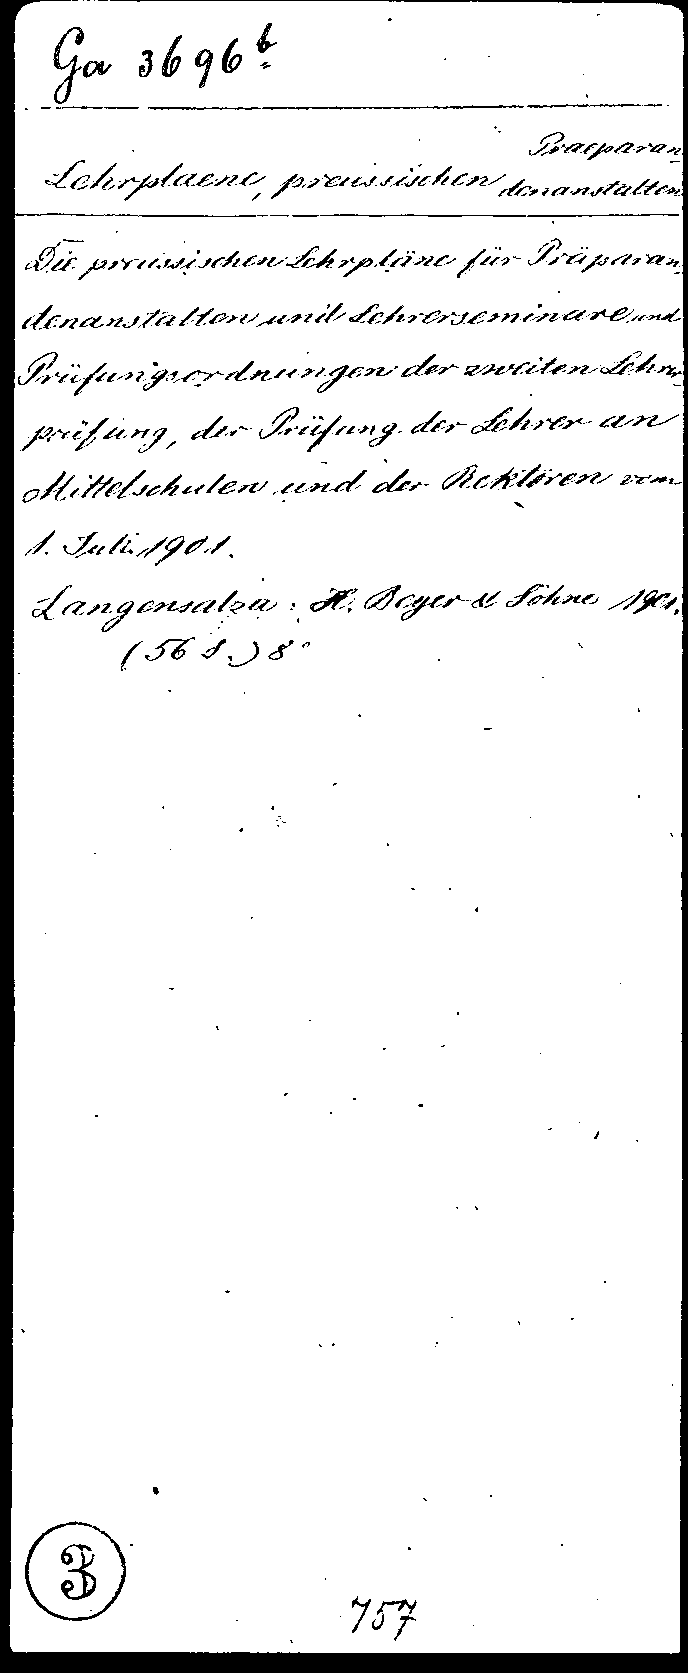 Ga 3696b
Praeparan-
Lehrplaene, preussischen denanstalten
Die preussischen Lehrpläne für Präparan-
denanstalten und Lehrerseminare und
Prüfungsordnungen der zweiten Lehrer-
prüfung, der Prüfung der Lehrer an
Mittelschulen und der Rektoren vom
1. Juli 1901.
Langensalza: H. Beyer & Söhne 1901.
(56 S.) 8°
3
757